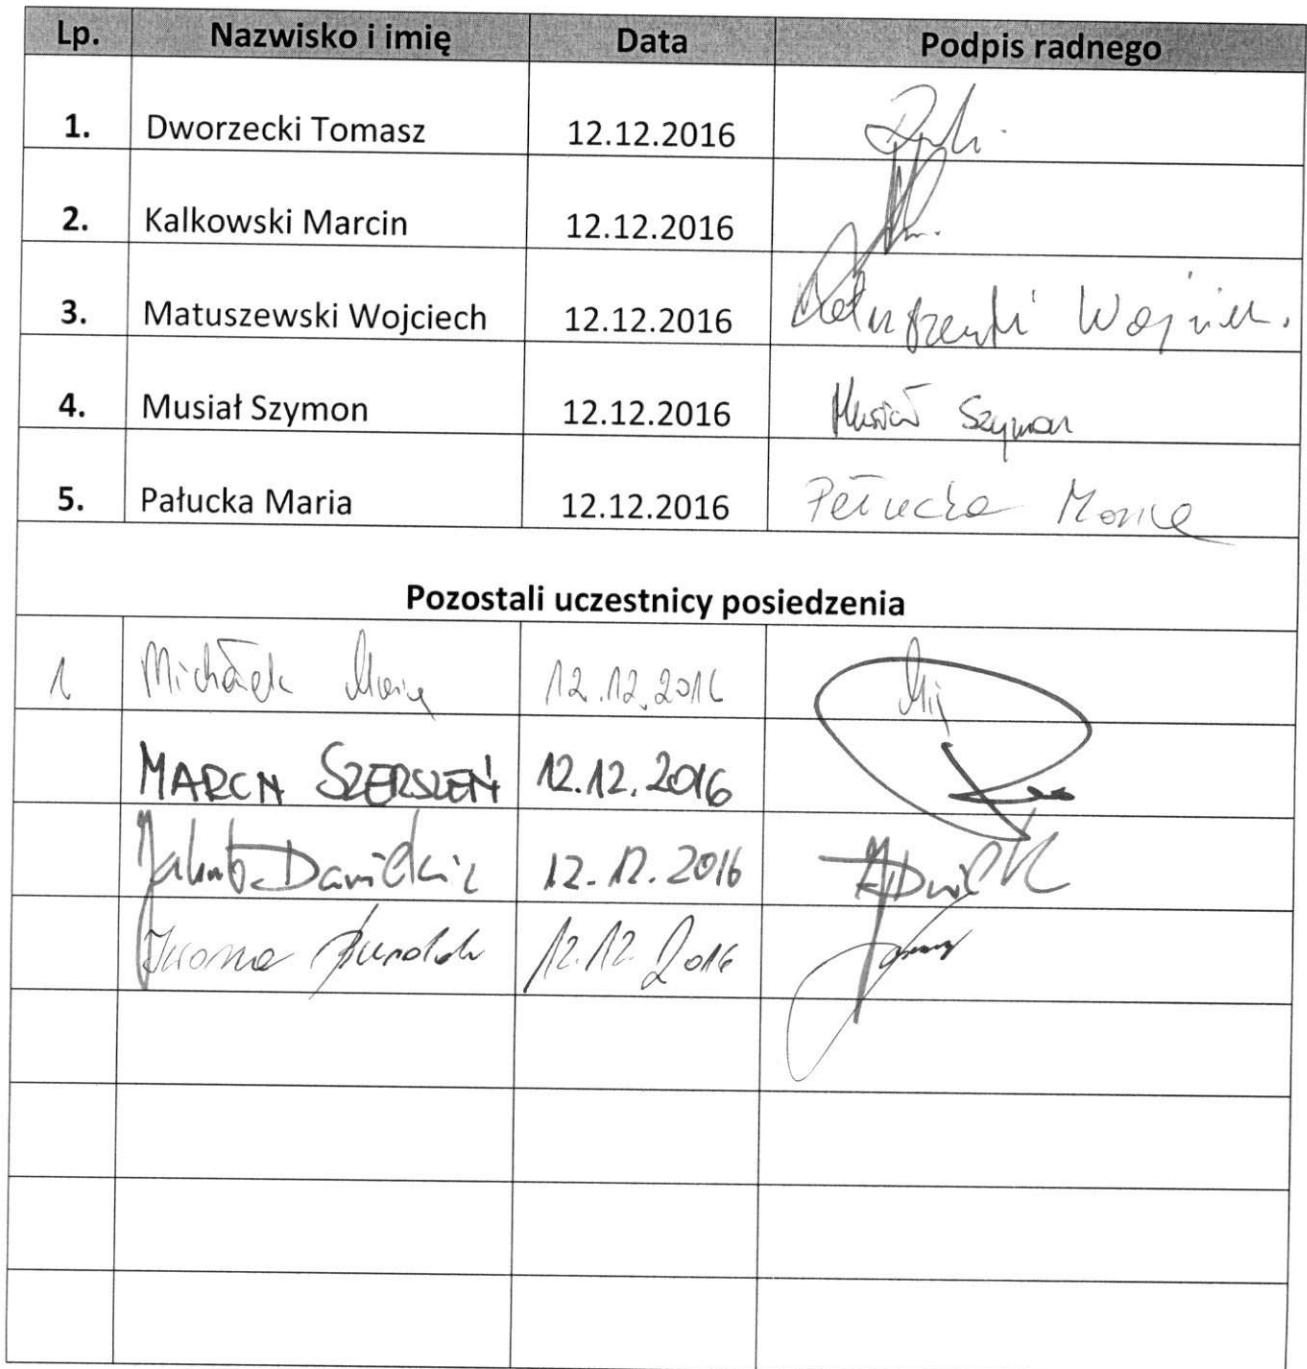 Lp. Nazwisko i imię Data Podpis radnego
1. Dworzecki Tomasz 12.12.2016
2. Kalkowski Marcin 12.12.2016
3. Matuszewski Wojciech 12.12.2016 Matuszewski Wojciech.
4. Musiał Szymon 12.12.2016 Musiał Szymon
5. Pałucka Maria 12.12.2016 Pałucka Maria
Pozostali uczestnicy posiedzenia
1 Michałek Maria 12.12.2016
MARCIN SZERSZEŃ 12.12.2016
Jakub 12.12.2016
Iwona 12.12.2016